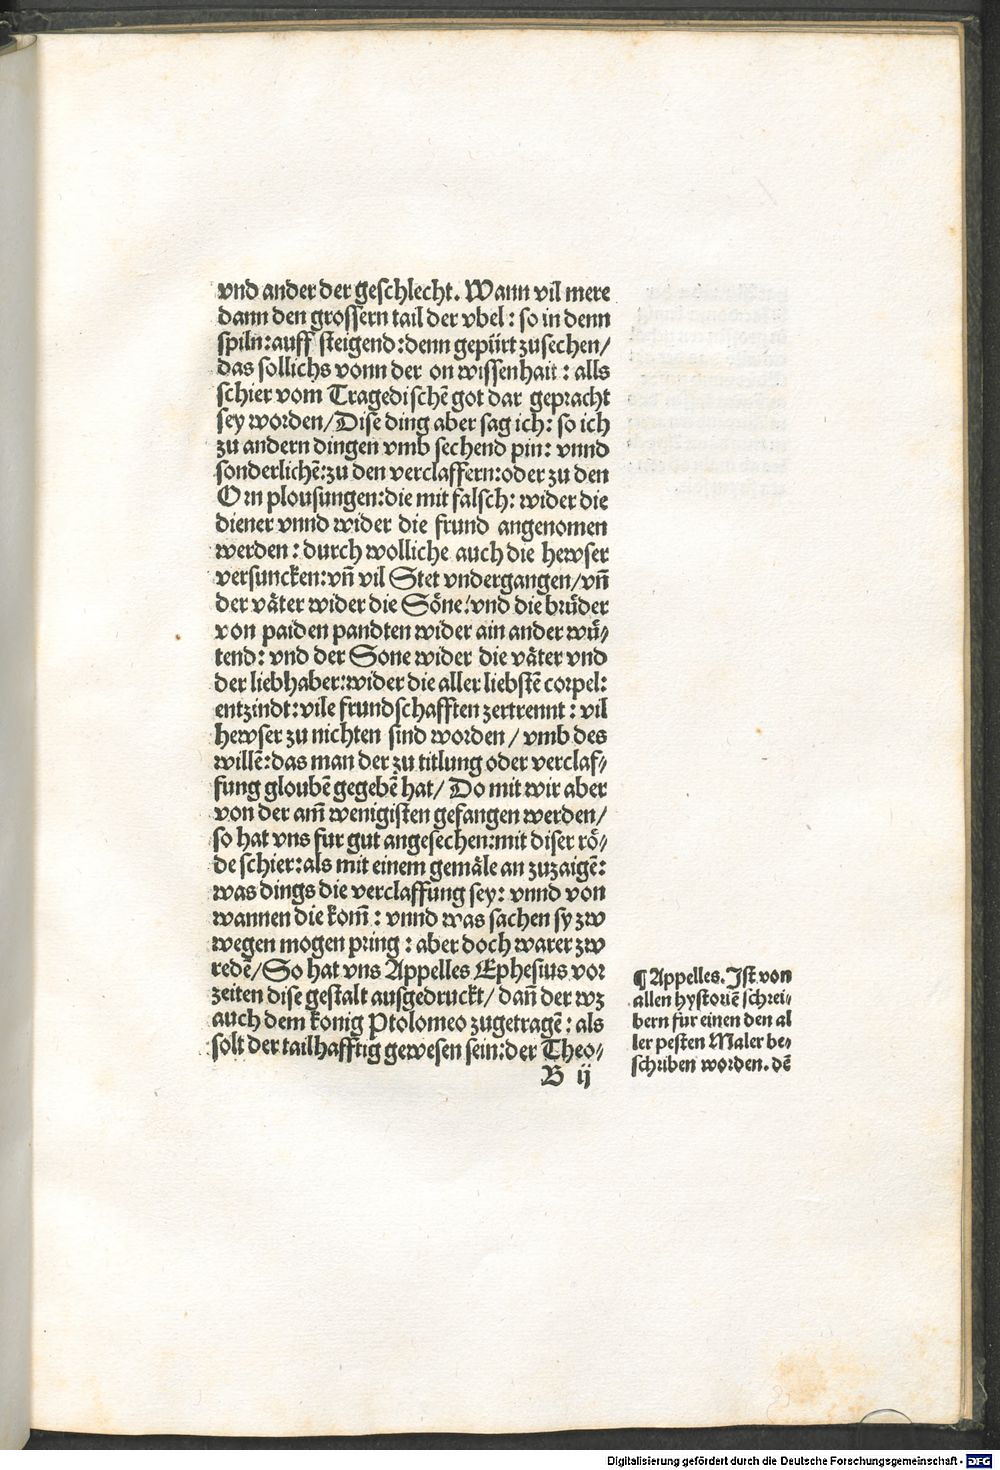 vnd ander der geschlecht. Wann vil mere
dann den grossern tail der vbel: so in denn
spiln: auff steigend: denn gepürt zusechen/
das sollichs vonn der on wissenhait: alls
schier vom Tragedischē got dar gepracht
sey worden/ Dise ding aber sag ich: so ich
zu andern dingen vmb sechend pin: vnnd
sonderlichē: zu den verclaffern: oder zu den
Orn plousungen: die mit falsch: wider die
diener vnnd wider die frund angenomen
werden: durch wolliche auch die hewser
versuncken: vn̄ vil Stet vndergangen/ vn̄
der väter wider die Söne: vnd die brüder
von paiden pandten wider ain ander wü⸗
tend: vnd der Sone wider die väter vnd
der liebhaber: wider die aller liebstē corpel:
entzindt: vile frundschafften zertrennt: vil
hewser zu nichten sind worden/ vmb des
willē: das man der zu titlung oder verclaf⸗
fung gloubē gegebē hat/ Do mit wir aber
von der am̄ wenigisten gefangen werden/
so hat vns fur gut angesechen: mit diser rö⸗
de schier: als mit einem gemäle an zuzaigē:
was dings die verclaffung sey: vnnd von
wannen die kom̄: vnnd was sachen sy zw
wegen mogen pring: aber doch warer zw
redē/ So hat vns Appelles Ephesius vor
zeiten dise gestalt ausgedruckt/ dan̄ der wz
auch dem konig Ptolomeo zugetragē: als
solt der tailhafftig gewesen sein: der Theo⸗
B ij
¶ Appelles. Jst von
allen hystoriē schrei⸗
bern fur einen den al
ler pesten Maler be⸗
schriben worden. dē
Digitalisierung gefördert durch die Deutsche Forschungsgemeinschaft - DFG